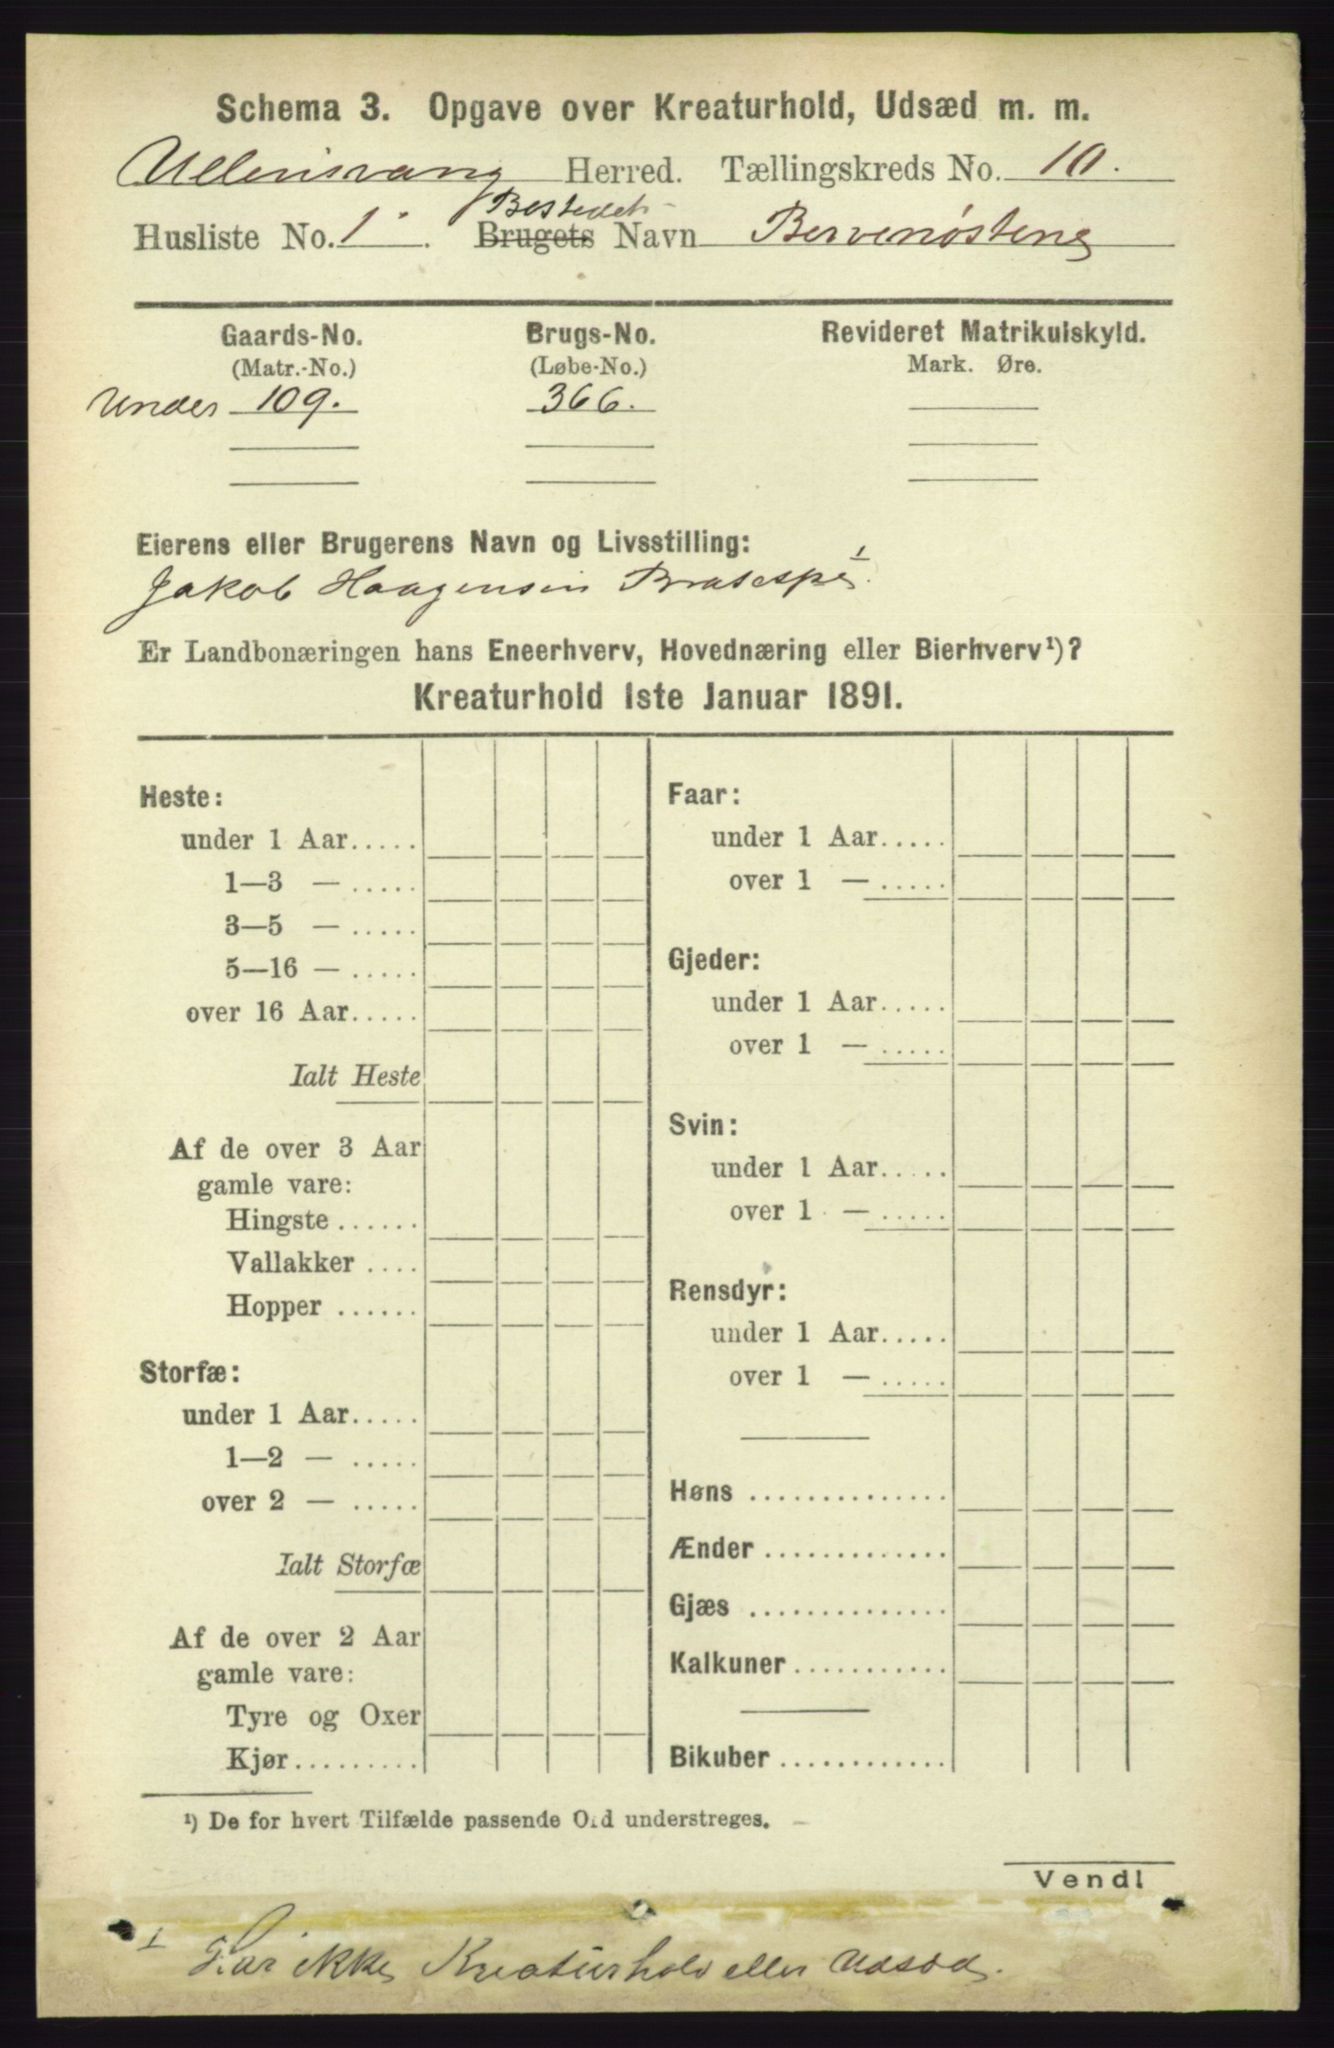 Schema 3. Opgave over Kreaturhold, Udsæd m. m.
Ullensvang Herred. Tællingskreds No. 10.
Bostedets
Husliste No. 1. Brugets Navn
Gaards-No. Brugs-No. Revideret Matrikulskyld.
(Matr.-No.) (Løbe-No.) Mark. Øre.
Under 109. 366.
Eierens eller Brugerens Navn og Livsstilling:
Jakob Haagensen
Er Landbonæringen hans Eneerhverv, Hovednæring eller Bierhverv¹)?
Kreaturhold 1ste Januar 1891.
Heste:
under 1 Aar.....
1—3 — .....
3—5 — .....
5—16 — .....
over 16 Aar.....
Ialt Heste
Af de over 3 Aar
gamle vare:
Hingste ......
Vallakker ....
Hopper ......
Storfæ:
under 1 Aar.....
1—2 — .....
over 2 — .....
Ialt Storfæ
Af de over 2 Aar
gamle vare:
Tyre og Oxer
Kjør.........
Faar:
under 1 Aar.....
over 1 — .....
Gjeder:
under 1 Aar.....
over 1 — .....
Svin:
under 1 Aar.....
over 1 — .....
Rensdyr:
under 1 Aar.....
over 1 — .....
Høns ..............
Ænder .............
Gjæs ..............
Kalkuner...........
Bikuber ............
¹) De for hvert Tilfælde passende Ord understreges.
Vend!
1 Har ikke Kreaturhold eller Udsæd.